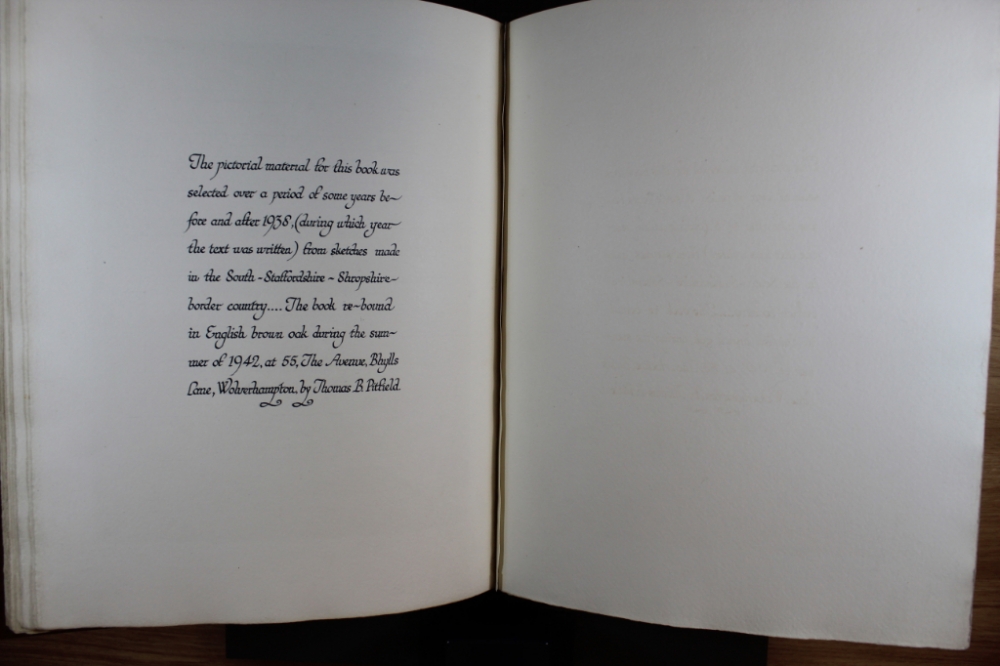 The pictorial material for this book was
selected over a period of some years be-
fore and after 1938, (during which year
the text was written) from sketches made
in the South - Staffordshire - Shropshire-
border country.... The book re-bound
in English brown oak during the sum-
mer of 1942, at 55, The Avenue, Bhylls
Lane, Wolverhampton, by Thomas B. Pitfield.